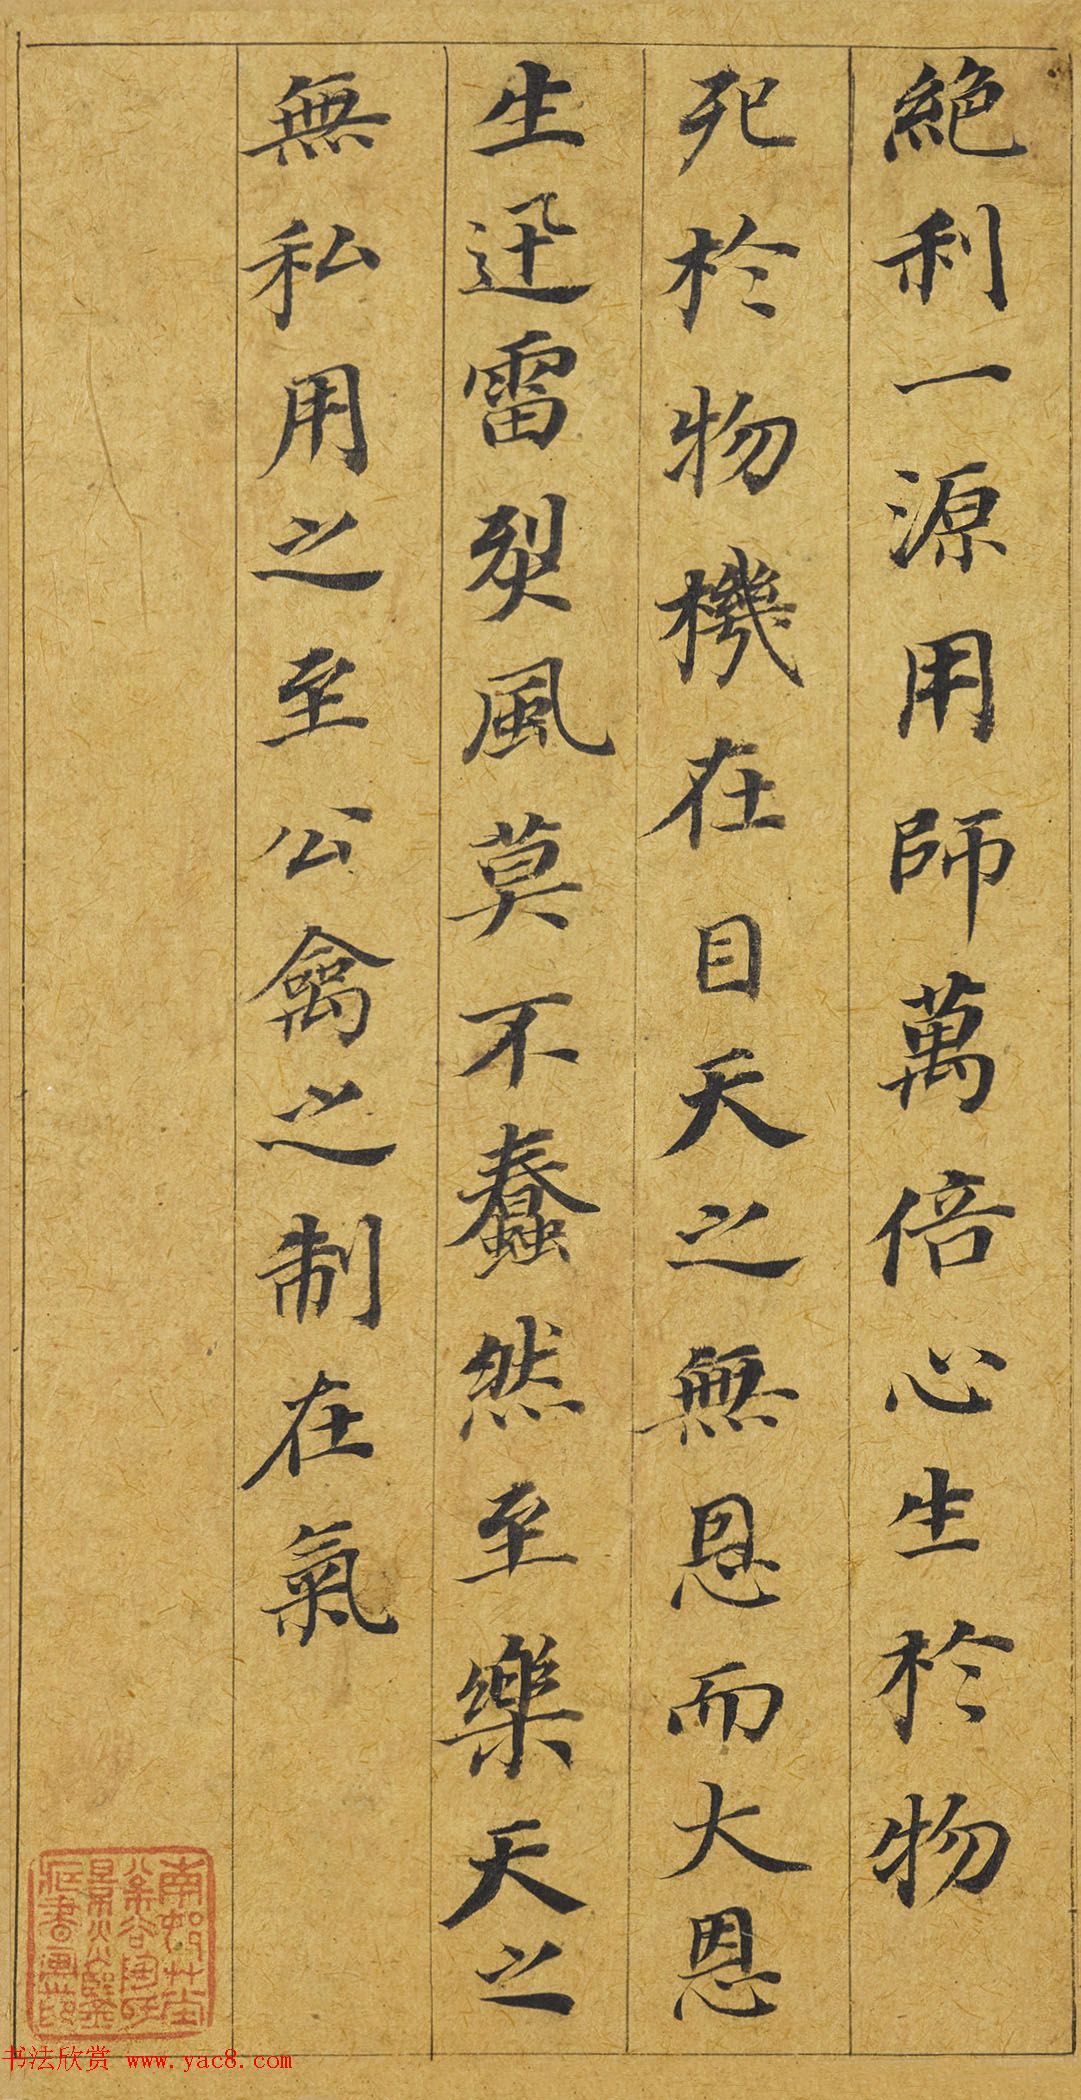 絶利一源用師萬倍心生於物
死於物機在目天之無恩而大恩
生迅雷烈風莫不蠢然至樂天之
無私用之至公禽之制在氣
書法欣赏 www.yac8.com